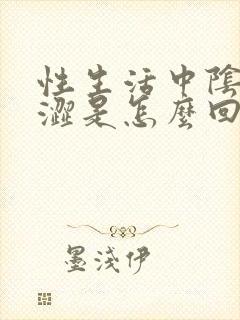 性生活中陰
澀是怎麼回
墨淺伊